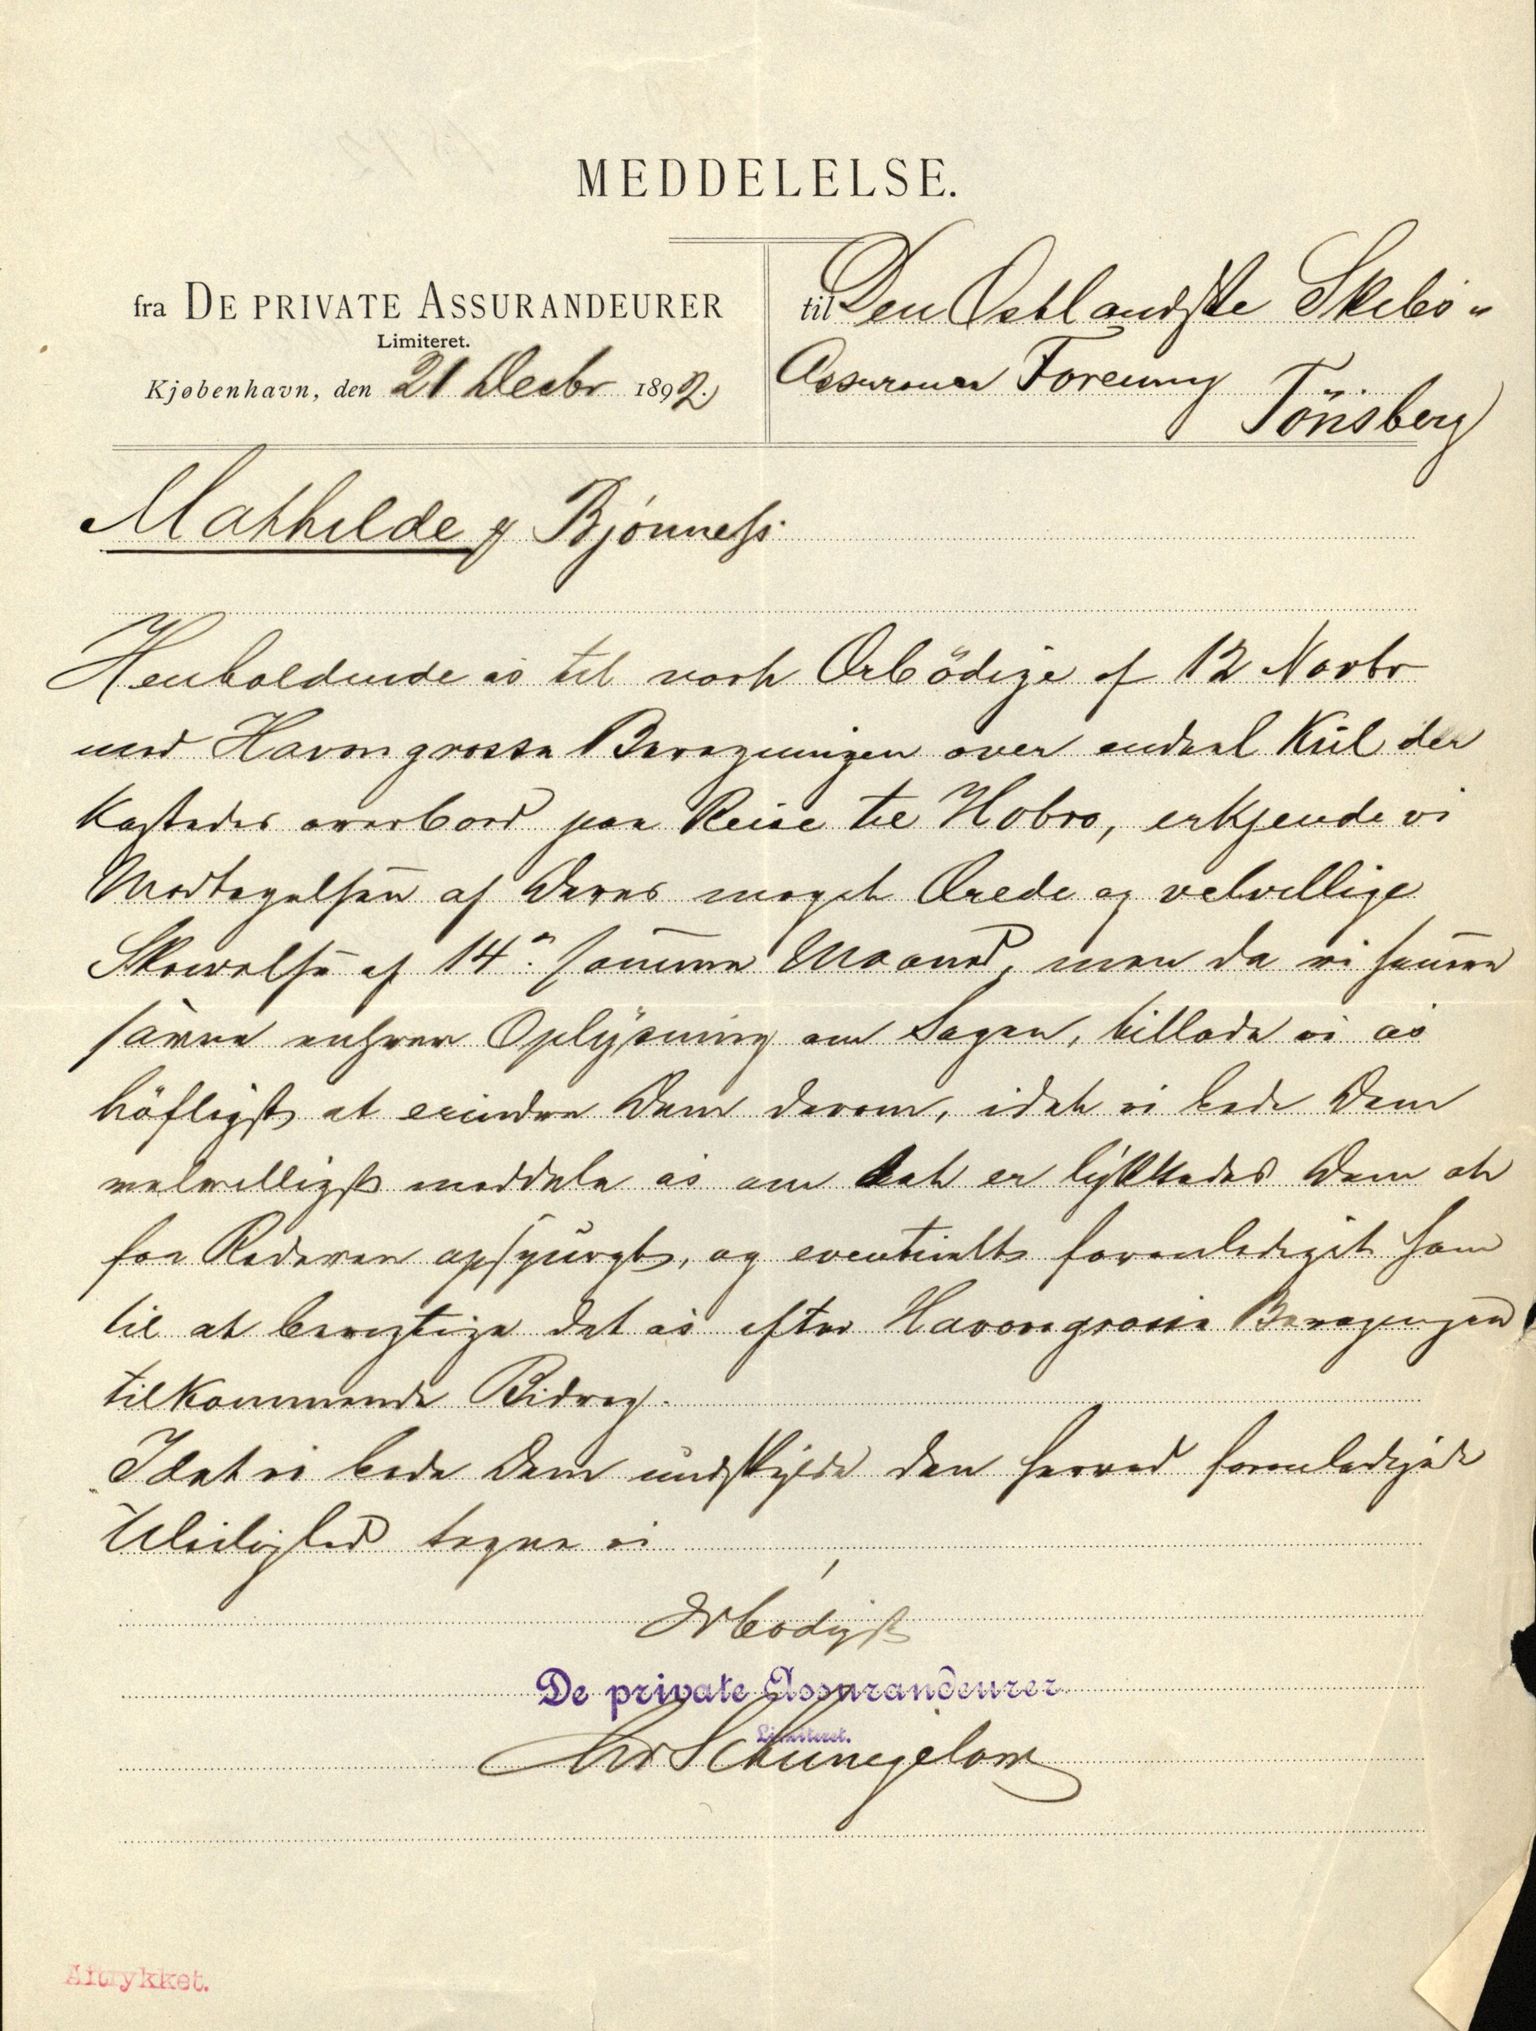 MEDDELELSE.
fra DE PRIVATE ASSURANDEURER
Limiteret.
Kjøbenhavn, den 21 Decbr 1892.
til Den Østlandske Skibs-
Assurance Forening Tönsberg
Mathilde af Bjönness.
Henholdende os til vort Ærbödige af 12 Novbr
med Havarigrosse Beregningen over endeel Kul der
kastedes overbord paa Reise til Hobro, erkjende vi
Modtagelsen af Deres meget Ærede og velvillige
Skrivelse af 14. samme Maaned, men da vi senere
savne enhver Oplysning om Sagen, tillade vi os
höfligst at erindre Dem derom, idet vi bede Dem
velvilligst meddele os om det er lykkedes Dem at
faa Rederen opspurgt, og eventuelt foranlediget ham
til at berigtige det os efter Havarigrosse Beregningen
tilkommende Bidrag.
Idet vi bede Dem undskylde den herved foranledigede
Uleilighed tegne vi
Ærbödigst
De private Assurandeurer
Limiteret.
Aftrykket.